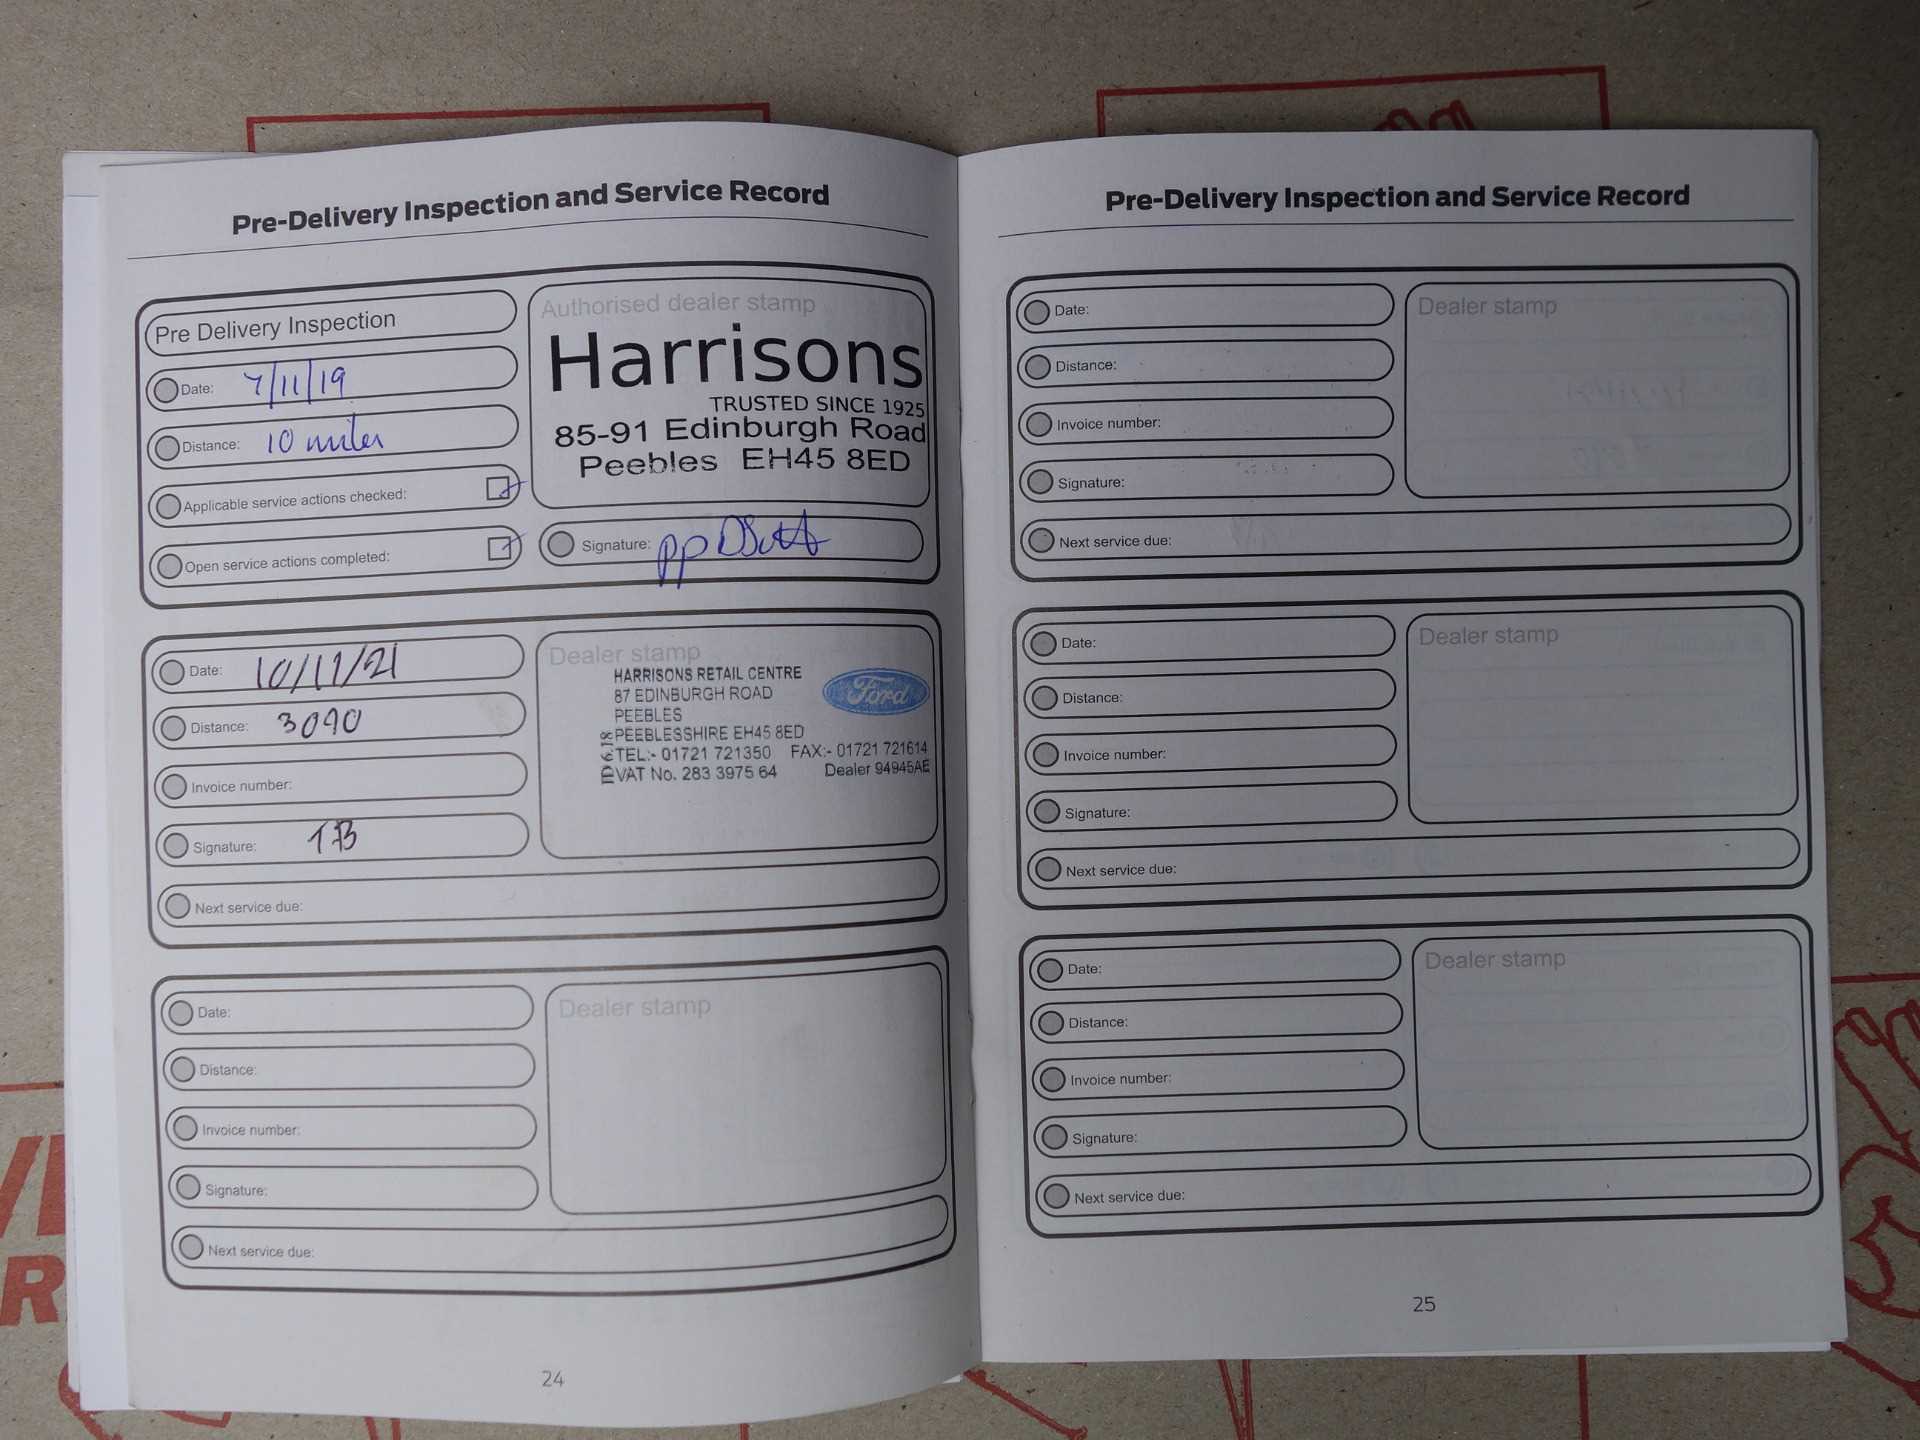 Pre-Delivery Inspection and Service Record
Pre Delivery Inspection
Date: 7/11/19
Distance: 10 miles
Applicable service actions checked:
Open service actions completed:
Authorised dealer stamp
Harrisons
TRUSTED SINCE 1925
85-91 Edinburgh Road
Peebles EH45 8ED
Signature: pp
Date: 10/11/21
Distance: 3090
Invoice number:
Signature: TB
Next service due:
Dealer stamp
HARRISONS RETAIL CENTRE
87 EDINBURGH ROAD
PEEBLES
PEEBLESSHIRE EH45 8ED
TEL:- 01721 721350 FAX:- 01721 721614
VAT No. 283 3975 64 Dealer 94945AE
Ford
Date:
Distance:
Invoice number:
Signature:
Next service due:
Dealer stamp
24
Pre-Delivery Inspection and Service Record
Date:
Distance:
Invoice number:
Signature:
Next service due:
Dealer stamp
Date:
Distance:
Invoice number:
Signature:
Next service due:
Dealer stamp
Date:
Distance:
Invoice number:
Signature:
Next service due:
Dealer stamp
25